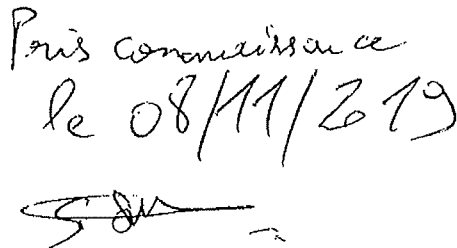 Pris connaissance
le 08/11/2019